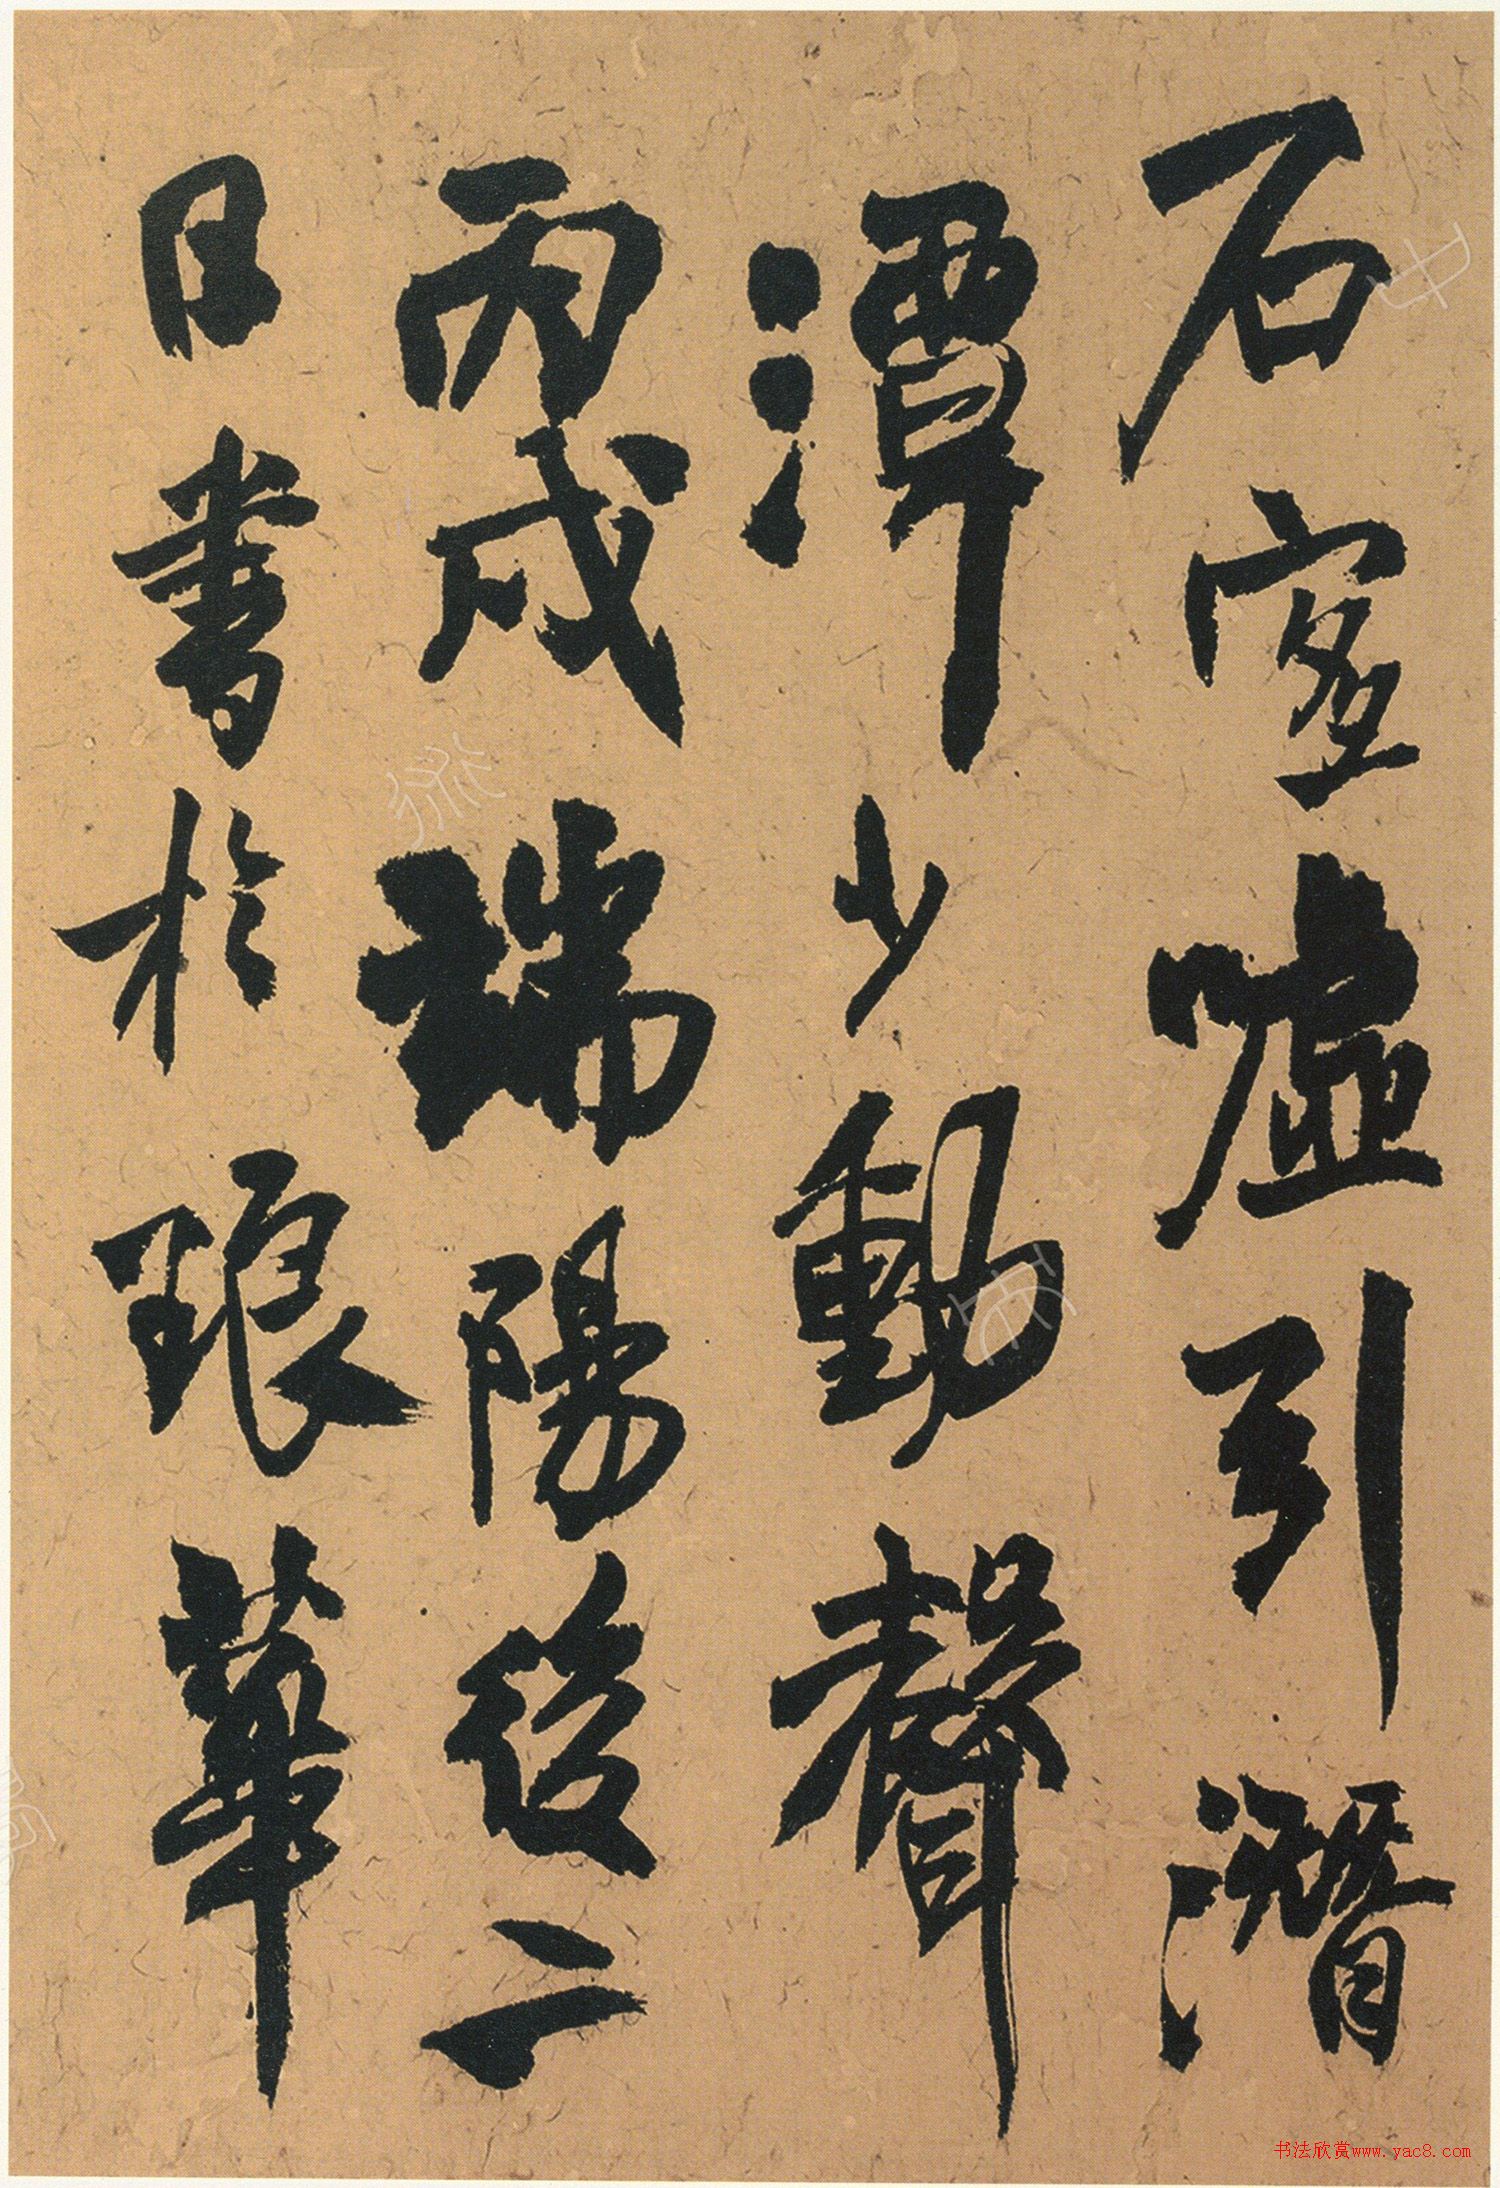 石室虛引潛
潭少動聲
丙戌瑞陽後二
日書於琅華
书法欣赏www.yac8.com